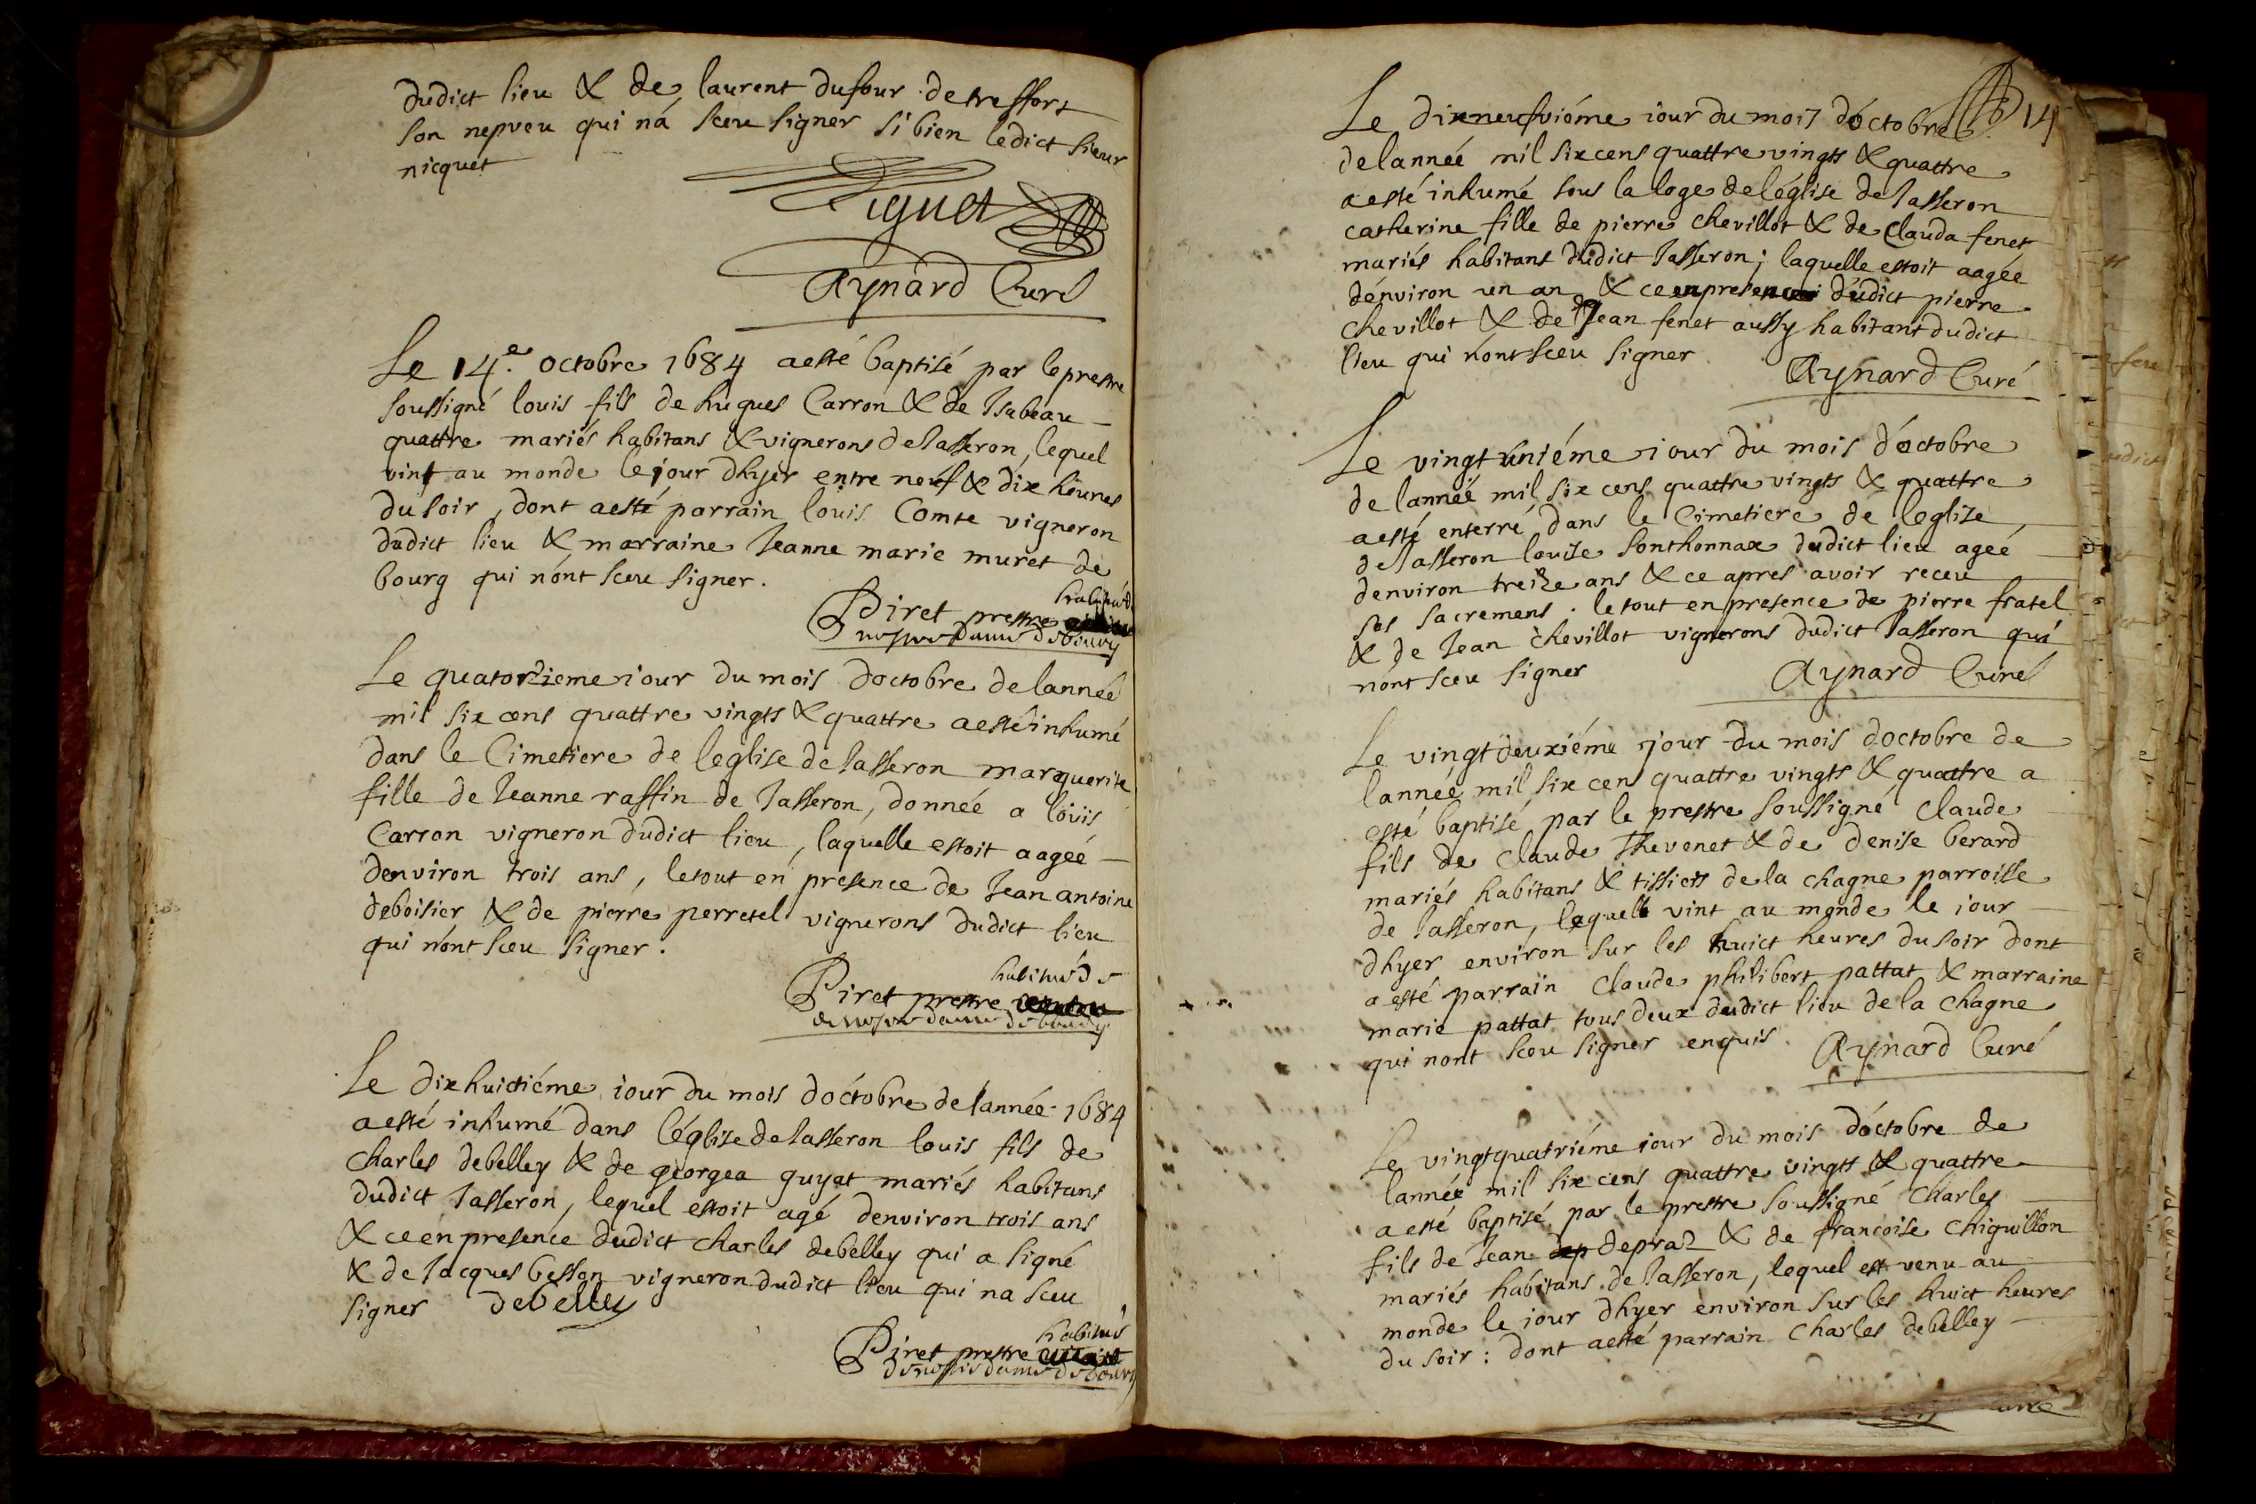 dudict lieu & de laurent dufour de treffort
son nepveu qui n'a sceu signer si bien ledict sieur
nicquet
Aynard Curé
Le 14.e octobre 1684 a esté baptisé par le prestre
soussigné louis fils de hugues Carron & de Isabeau
quattre mariés habitans & vignerons de Jasseron, lequel
vint au monde le jour dhyer entre neuf & dix heures
du soir, dont a esté parrain louis Comte vigneron
dudict lieu & marraine Jeanne marie muret de
bourg qui n'ont sceu signer.
habitué
Piret prestre
nostre dame de bourg
Le quatorzieme iour du mois doctobre de lannée
mil six cens quattre vingts & quattre a esté inhumé
dans le Cimetiere de leglise de Jasseron marguerite
fille de Jeanne raffin de Jasseron, donnée a loüis
Carron vigneron dudict lieu, laquelle estoit aageé
denviron trois ans, le tout en presence de Jean antoine
deboisier & de pierre perretel vignerons dudict lieu
qui n'ont sceu signer.
habitué de
Piret prestre
de nostre dame de bourg
Le dixhuictiéme iour du mois d'octobre de lannée 1684
a esté inhumé dans l'église de Jasseron louis fils de
charles debelley & de georgea guyat mariés habitans
dudict Jasseron, lequel estoit agé denviron trois ans
& ce en presence dudict charles debelley qui a signé
& de Jacques besson vigneron dudict lieu qui na sceu
signer debelley
habitué
Piret prestre
de nostre dame de bourg
14
Le dixneufviéme iour du mois d'octobre
de lannée mil six cens quattre vingts & quattre
a esté inhumé sous la loge de l'église de Jasseron
catherine fille de pierre chevillot & de Clauda fenet
mariés habitans dudict Jasseron; laquelle estoit aagée
d'environ un an & ce en presence dudict pierre
chevillot & de Jean fenet aussy habitant dudict
lieu qui n'ont sceu signer
Aynard Curé
Le vingt uniéme iour du mois d'octobre
de lannée mil six cens quattre vingts & quattre
a esté enterré dans le Cimetiere de leglize
de Jasseron louize sonthonnax dudict lieu ageé
denviron treize ans & ce apres avoir receu
ses sacremens. le tout en presence de pierre fratel
& de Jean chevillot vignerons dudict Jasseron qui
n'ont sceu signer
Aynard Curé
Le vingtdeuxiéme jour du mois doctobre de
lannée mil six cens quattre vingts & quattre a
esté baptisé par le prestre soussigné claude
fils de claude Thevenet & de denise berard
mariés habitans & tissiers de la chagne parroisse
de Jasseron, lequell vint au monde le iour
dhyer environ sur les huict heures du soir dont
a esté parrain Claude philibert pattat & marraine
marie pattat tous deux dudict lieu de la chagne
qui nont sceu signer enquis. Aynard Curé
Le vingtquatriéme iour du mois d'octobre de
lannée mil six cens quattre vingts & quattre
a esté baptisé par le prestre soussigné Charles
fils de Jean dep depraz & de francoise chiquillon
mariés habitans de Jasseron, lequel est venu au
monde le iour dhyer environ sur les huict heures
du soir: dont a esté parrain Charles debelley